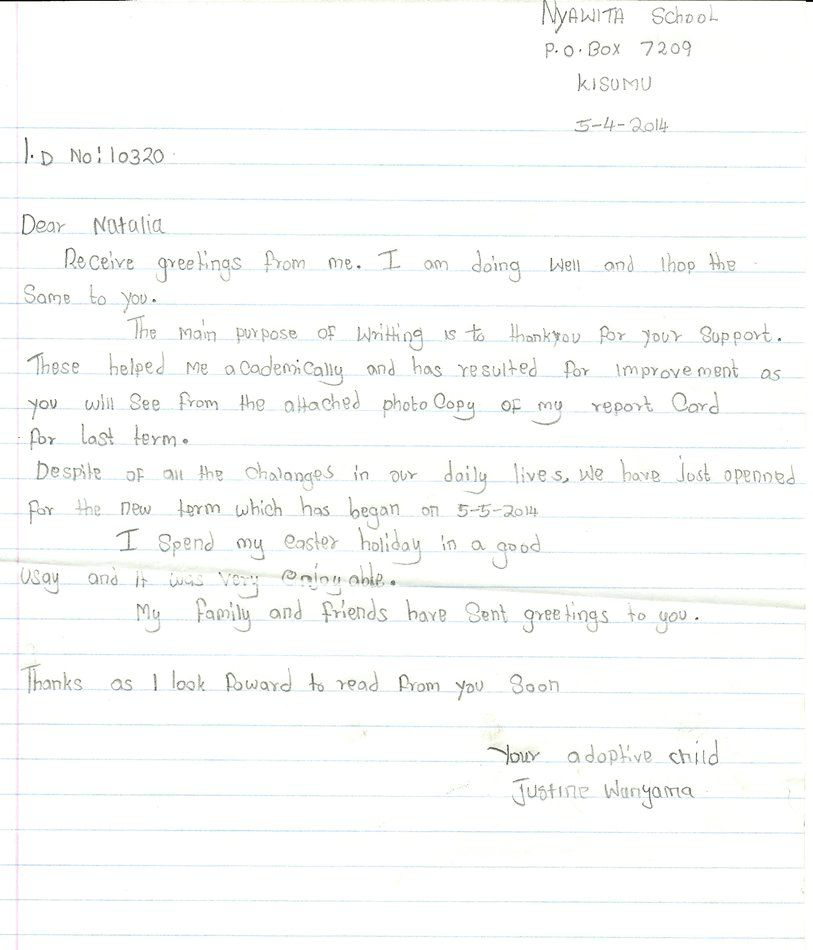 NYAWITA SCHOOL
P.O.BOX 7209
KISUMU
5-4-2014
I.D No: 10320.
Dear Natalia
Receive greetings from me. I am doing well and Ihop the
Same to you.
The main purpose of writting is to thankyou for your support.
These helped me academically and has resulted for improvement as
you will see from the attached photo Copy of my report Card
for last term.
Despite of all the chalanges in our daily lives, we have just openned
for the new term which has began on 5-5-2014
I Spend my easter holiday in a good
way and it was very enjoyable.
My family and friends have sent greetings to you.
Thanks as I look foward to read from you soon
Your adoptive child
Justine Wanyama